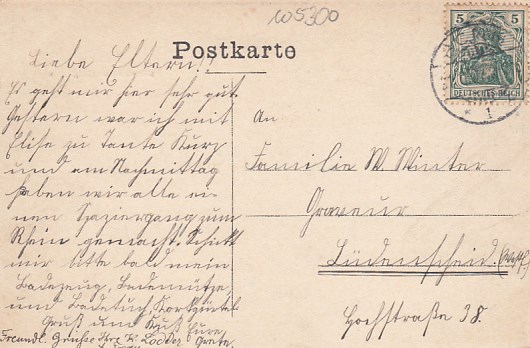 105300
Postkarte
Liebe Eltern!!
Es geht mir hier sehr gut.
Gestern war ich mit
Elise zu Tante Kurz
und am Nachmittag
haben wir alle ei-
nen Spaziergang zum
Rhein gemacht. Schickt
mir bitte bald mein
Badezeug, Bademütze
und Badetuch, Korkgürtel.
Gruß und Kuß Eure
Grete.
Freundl. Grüße Ihre
An
Familie W. Winter
Graveur
Lüdenscheid (Westf)
Hochstraße 38.
5 5
DEUTSCHES REICH
* 1